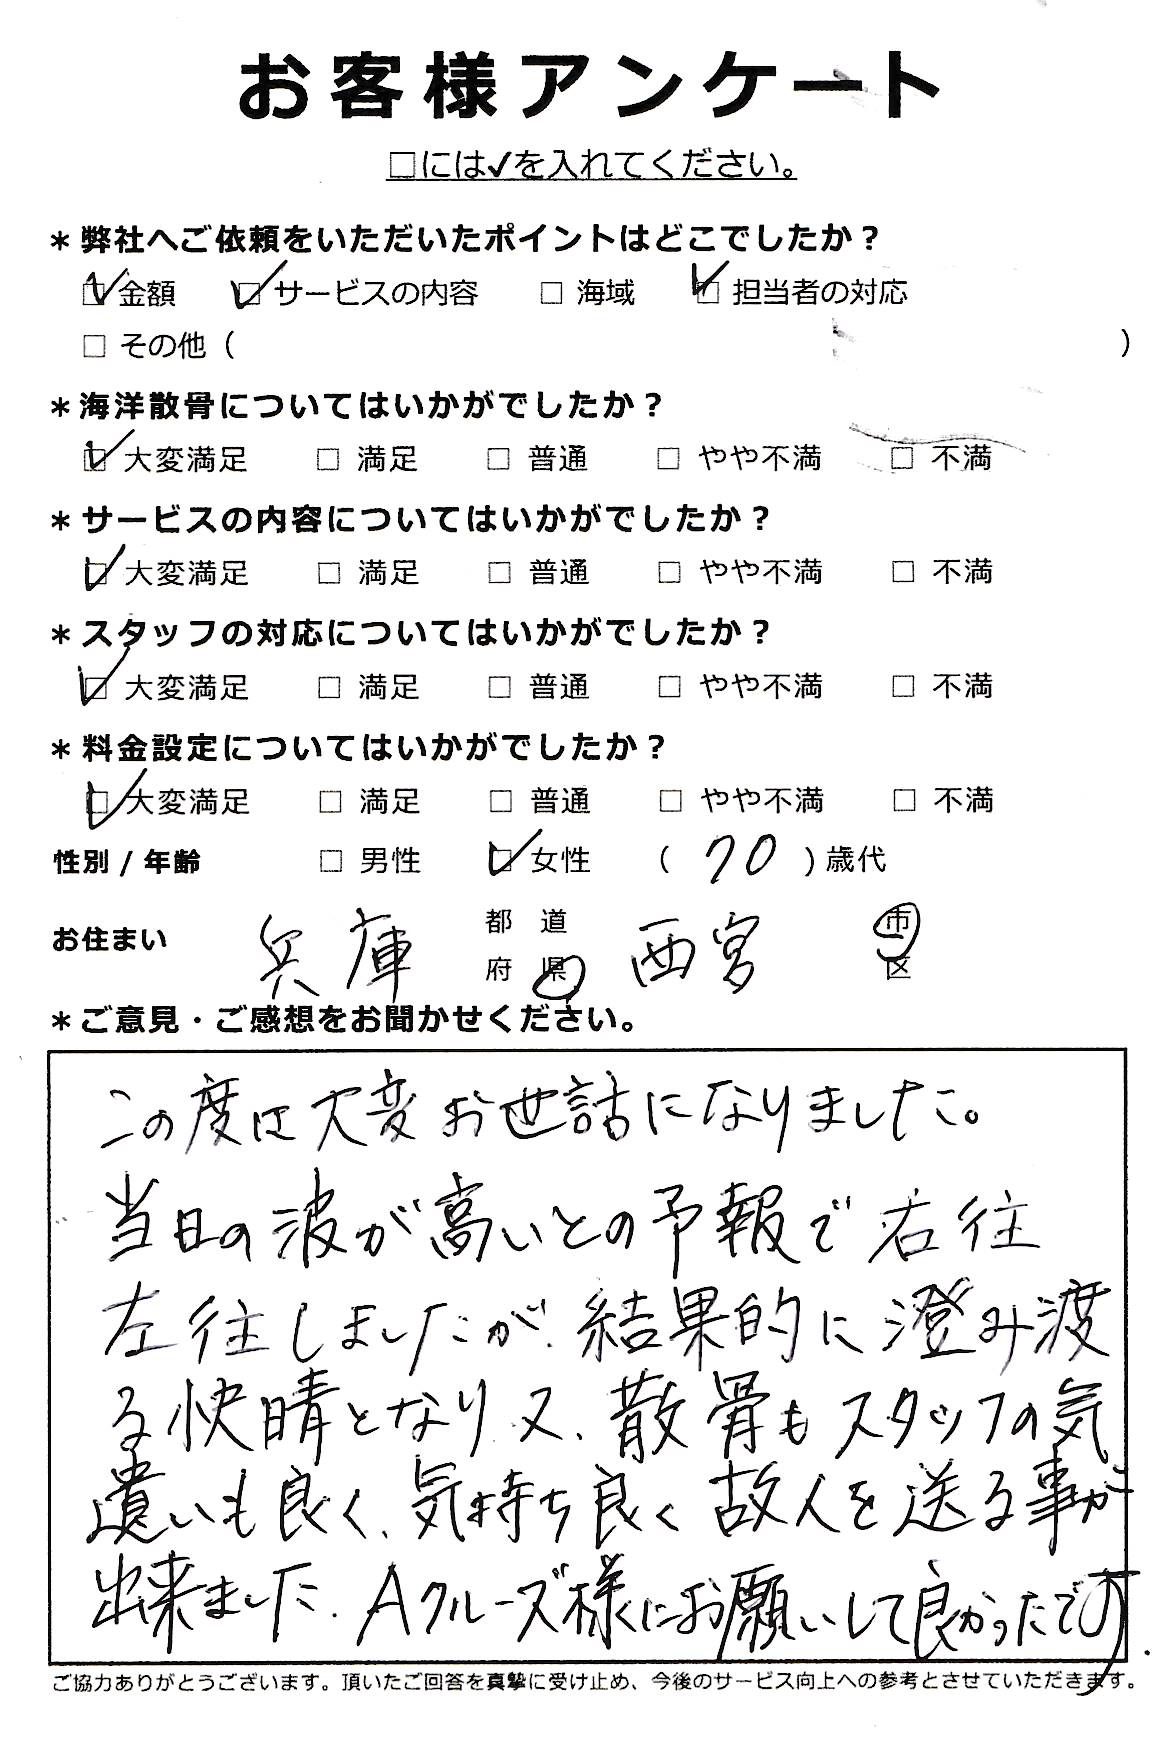 お客様アンケート
□には✓を入れてください。
＊弊社へご依頼をいただいたポイントはどこでしたか？
☑金額 ☑サービスの内容 □海域 ☑担当者の対応
□その他（ ）
＊海洋散骨についてはいかがでしたか？
☑大変満足 □満足 □普通 □やや不満 □不満
＊サービスの内容についてはいかがでしたか？
☑大変満足 □満足 □普通 □やや不満 □不満
＊スタッフの対応についてはいかがでしたか？
☑大変満足 □満足 □普通 □やや不満 □不満
＊料金設定についてはいかがでしたか？
☑大変満足 □満足 □普通 □やや不満 □不満
性別/年齢 □男性 ☑女性 （70）歳代
お住まい 兵庫 都道府県 西宮 市区
＊ご意見・ご感想をお聞かせください。
この度は大変お世話になりました。
当日の波が高いとの予報で右往
左往しましたが、結果的に澄み渡
る快晴となり、又、散骨もスタッフの気
遣いも良く、気持ち良く故人を送る事が
出来ました。Aクルーズ様にお願いして良かったです.
ご協力ありがとうございます。頂いたご回答を真摯に受け止め、今後のサービス向上への参考とさせていただきます。